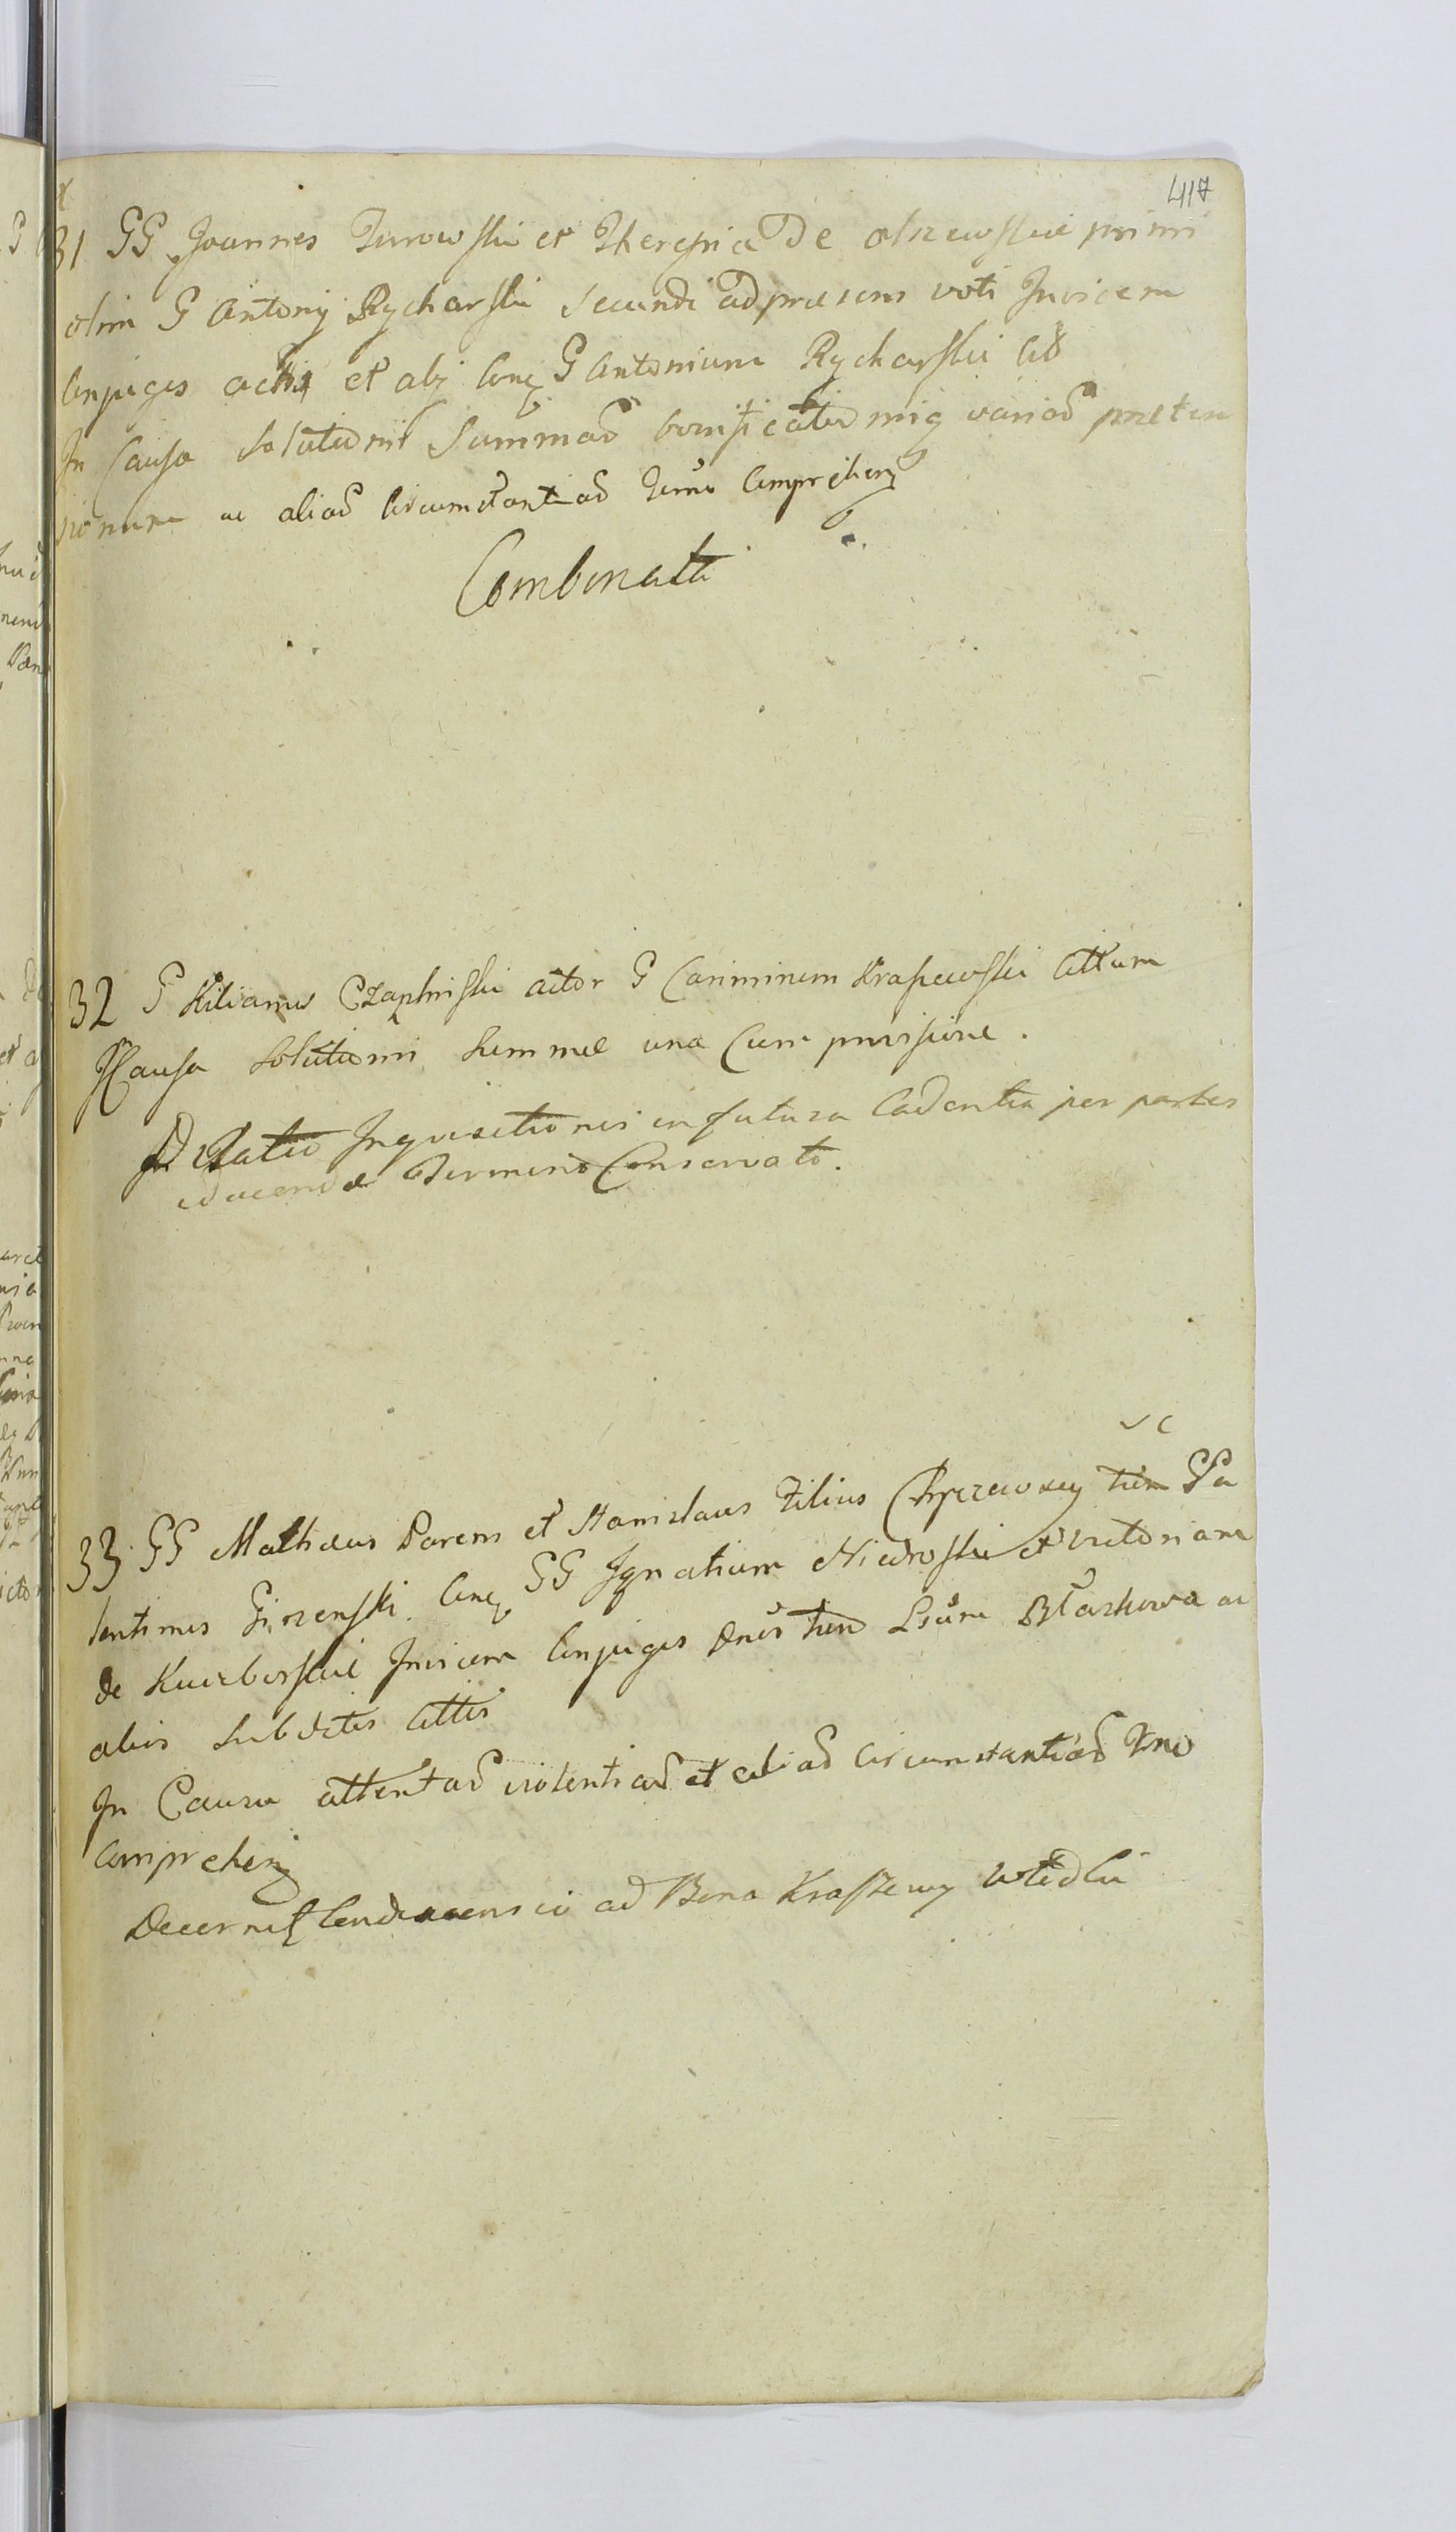 417
31 GG Joannes Turowski et Theresia de Olszewskie primi
olim G Antonij Rycharski secundi ad præsens voti Invicem
Conjuges act et alij Conq G Antonium Rycharski Cit
In Causa solutionis Summar bonificationisq variar præten
sionum ac aliar Circumstantiar Termo Comprehen
Combinati
32 G Kilianus Czaplinski actor G Casimirum Kraszewski Cittum
In Causa solutionis summæ una Cum provisione.
Dilatio Inquisitionis in futura Cadentia per partes
educendæ Termino Conservato.
33 GG Mathæus Parens et Stanislaus Filius tum G Va
lentinus Conq GG Ignatium et Victoriam
de Invicem Conjuges Dnos tum ac
alios subditos Cittos
In Causa attentar violentiar et aliar Circumstantiar Tno
Comprehen
Decernit Condescensio ad Bona Kraszewy